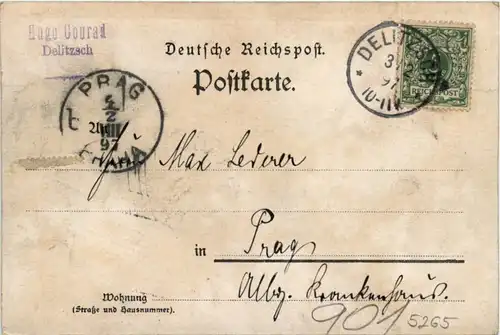 Hugo Conrad
Delitzsch
Deutsche Reichspost.
Postkarte.
DELITZSCH
3
2
97
10-11V
REICHSPOST
PRAG
2
97
PRAHA
Max Lederer
in
Prag
Allg. Krankenhaus.
Wohnung
(Straße und Hausnummer).
901
5265